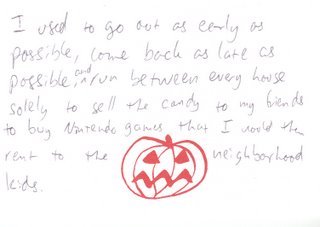 I used to go out as early as
possible, come back as late as
possible, and run between every house
solely to sell the candy to my friends
to buy Nintendo games that I would then
rent to the neighborhood
kids.